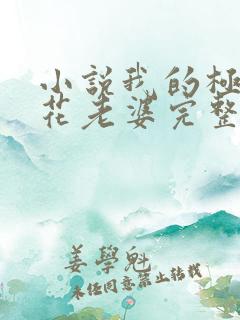 小説我的極
花老婆完整
姜學魁
未經同意禁止轉載